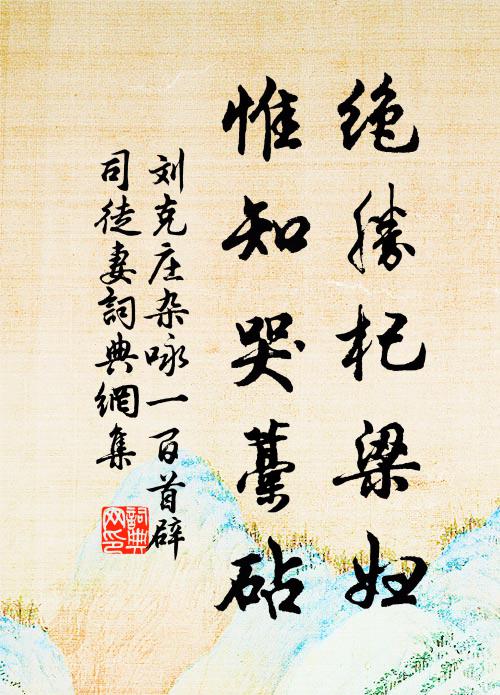 绝胜杞梁妇
惟知哭藁砧
刘克庄杂咏一百首辟
司徒妻詞典網集
詞典
网